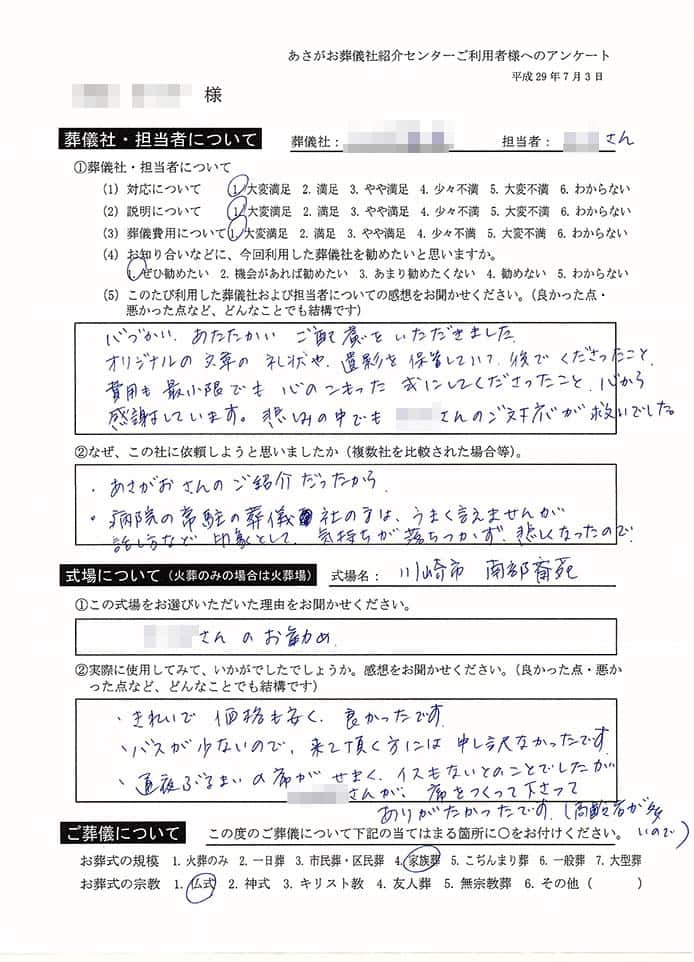 あさがお葬儀社紹介センターご利用者様へのアンケート
平成29年7月3日
様
葬儀社・担当者について 葬儀社： 担当者： さん
①葬儀社・担当者について
(1) 対応について 1.大変満足 2.満足 3.やや満足 4.少々不満 5.大変不満 6.わからない
(2) 説明について 1.大変満足 2.満足 3.やや満足 4.少々不満 5.大変不満 6.わからない
(3) 葬儀費用について 1.大変満足 2.満足 3.やや満足 4.少々不満 5.大変不満 6.わからない
(4) お知り合いなどに、今回利用した葬儀社を勧めたいと思いますか。
1.ぜひ勧めたい 2.機会があれば勧めたい 3.あまり勧めたくない 4.勧めない 5.わからない
(5) このたび利用した葬儀社および担当者についての感想をお聞かせください。（良かった点・
悪かった点など、どんなことでも結構です）
心づかい、あたたかい ご配慮をいただきました
オリジナルの文章の礼状や、遺影を保管していて、後でくださったこと、
費用も最小限でも心のこもった式にしてくださったこと、心から
感謝しています。悲しみの中でも さんのご対応が救いでした。
②なぜ、この社に依頼しようと思いましたか（複数社を比較された場合等）。
・あさがおさんのご紹介だったから
・病院の常駐の葬儀社の方は、うまく言えませんが
話し方など 印象として、気持ちが落ちつかず、悲しくなったので
式場について（火葬のみの場合は火葬場） 式場名： 川崎市 南部斎苑
①この式場をお選びいただいた理由をお聞かせください。
さんのお勧め
②実際に使用してみて、いかがでしたでしょうか。感想をお聞かせください。（良かった点・悪か
った点など、どんなことでも結構です）
・きれいで価格も安く、良かったです
・バスが少ないので、来て頂く方には申し訳なかったです
・通夜ぶるまいの席がせまく、イスもないとのことでしたが
さんが、席をつくって下さって
ありがたかったです。（高齢者が多
いので）
ご葬儀について この度のご葬儀について下記の当てはまる箇所に○をお付けください。
お葬式の規模 1.火葬のみ 2.一日葬 3.市民葬・区民葬 4.家族葬 5.こぢんまり葬 6.一般葬 7.大型葬
お葬式の宗教 1.仏式 2.神式 3.キリスト教 4.友人葬 5.無宗教葬 6.その他（ ）